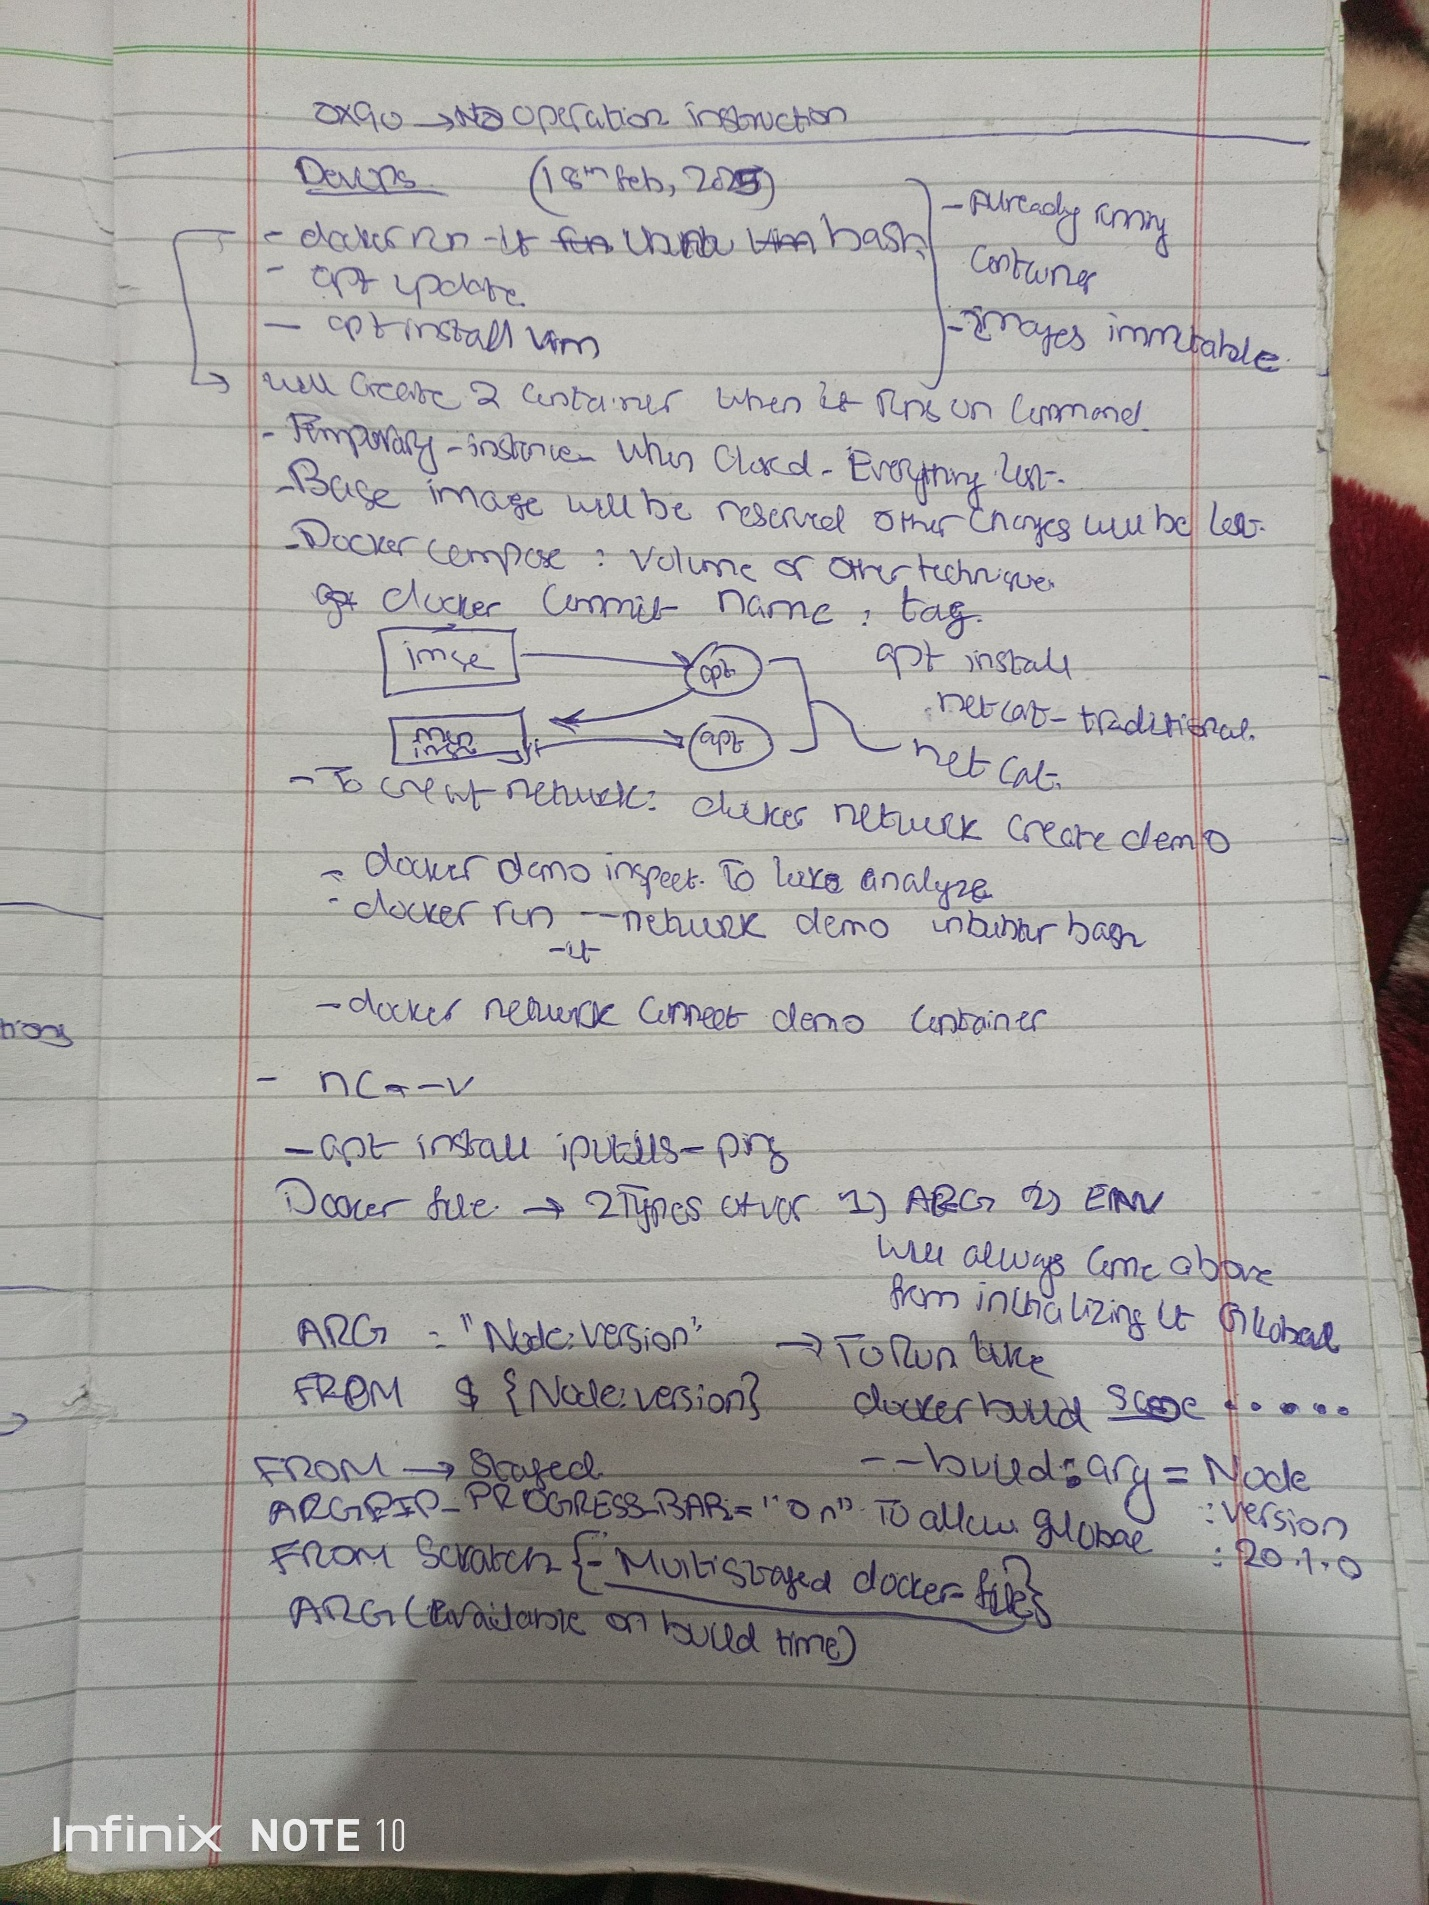 0x90 → No operation instruction
DevOps (18th feb, 2025)
- docker run -it ubuntu bash
- apt update
- apt install vim
- Already runny
container
- Images immutable
will create 2 container when it runs on command.
- Temporary - instance when closed - Everything lost.
- Base image will be reserved other changes will be lost.
- Docker compose : volume or other technique.
docker commit name : tag.
imge → apt
apt
apt install
netcat-traditional.
netcat.
- To creat network: docker network create demo
- docker demo inspect. To like analyze
- docker run --network demo bash
-it
- docker network connect demo container
tions
- nc - -v
- apt install iputils-ping
Docker file → 2 Types of var 1) ARG 2) ENV
will always come above
from initializing it Global
ARG = "Node:version"
→ To Run like
FROM $ {Node:version}
docker build .....
FROM → Staged
--build:arg = Node
:version
:20.1.0
ARG PIP_PROGRESS_BAR= "on" To allow global
FROM Scratch {- Multistaged docker-file}
ARG (Available on build time)
Infinix NOTE 10